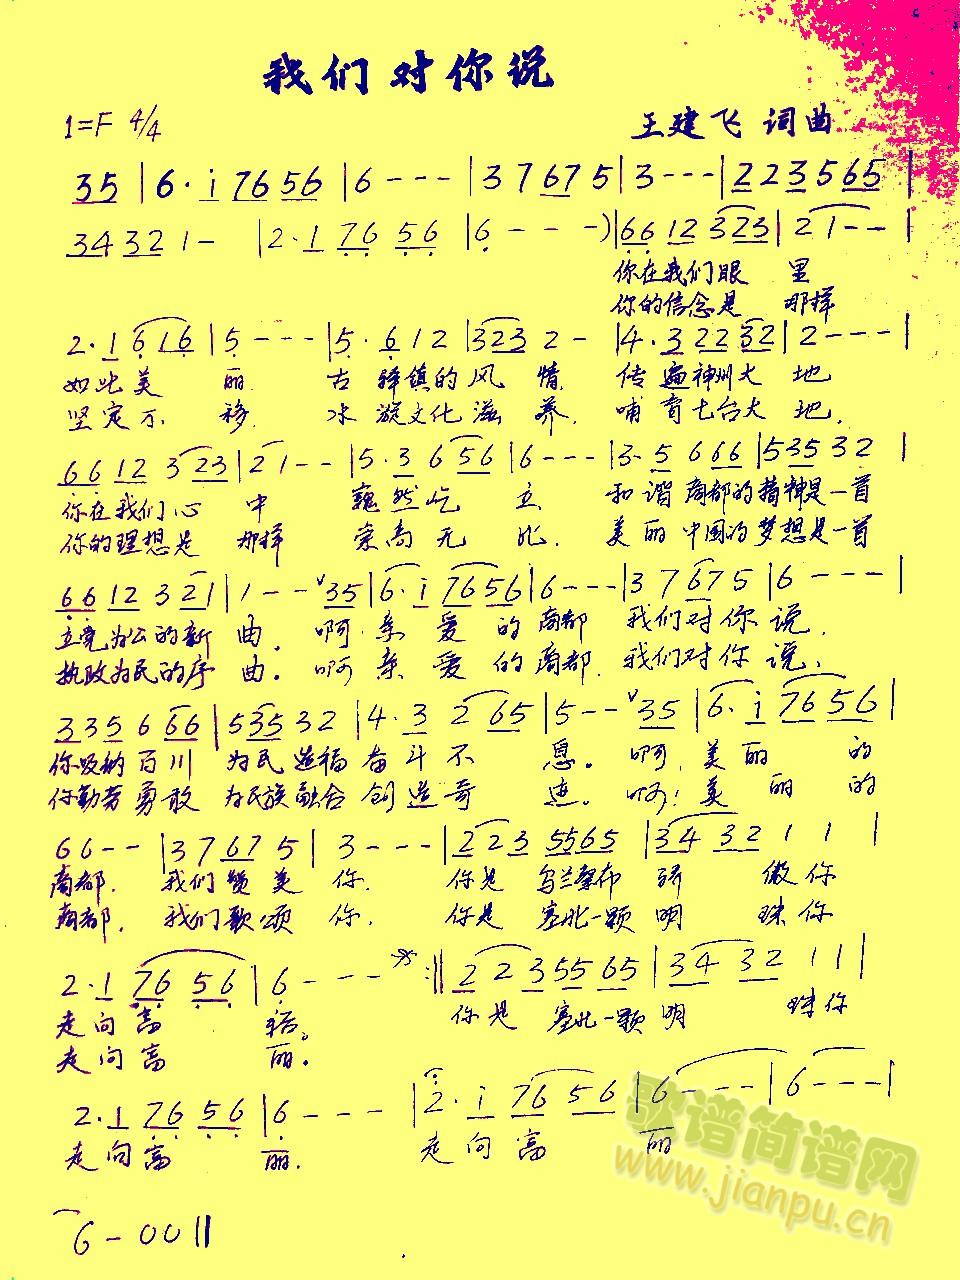 我们对你说
1=F 4/4
王建飞 词曲
35 | 6·i 7656 | 6--- | 37675 | 3--- | 223565 |
34321- | 2·1 7656 | 6---) | 6612 323 | 21-- |
你在我们眼 里
你的信念是 那样
2·1 616 | 5--- | 5·612 | 3232- | 4·32232 | 2--- |
如此美 丽. 古 驿镇的风 情, 传遍神州大 地
坚定不 移, 水 漩文化滋 养, 哺育七台大 地,
6612 323 | 21-- | 5·3 656 | 6--- | 3·5 666 | 53532 |
你在我们心 中 巍然屹 立 和谐商都的精神是一首
你的理想是 那样 崇高无 比, 美丽中国的梦想是一首
6612 321 | 1-- 35 | 6·i 7656 | 6--- | 37675 | 6--- |
立党为公的新 曲, 啊,亲 爱 的 商都 我们对你 说,
执政为民的序 曲。 啊 亲 爱 的 商都, 我们对你 说,
335666 | 53532 | 4·3 265 | 5-- 35 | 6·i 7656 |
你吸纳百川 为民造福奋斗不 息。 啊,美 丽 的
你勤劳勇敢 为民族融合创造奇 迹。 啊!美 丽 的
66-- | 37675 | 3--- | 2235565 | 343211 |
商都, 我们赞美 你, 你是 乌兰察布 骄 傲你
商都, 我们歌颂 你, 你是 塞北一颗 明 珠你
2·1 7656 | 6--- :‖ 2235565 | 343211 |
走向富 裕。 你是 塞北一颗明 珠你
走向富 丽。
2·1 7656 | 6--- | 2·i 7656 | 6--- | 6--- |
走向富 丽. 走向富 丽
6-00‖
歌谱简谱网
www.jianpu.cn